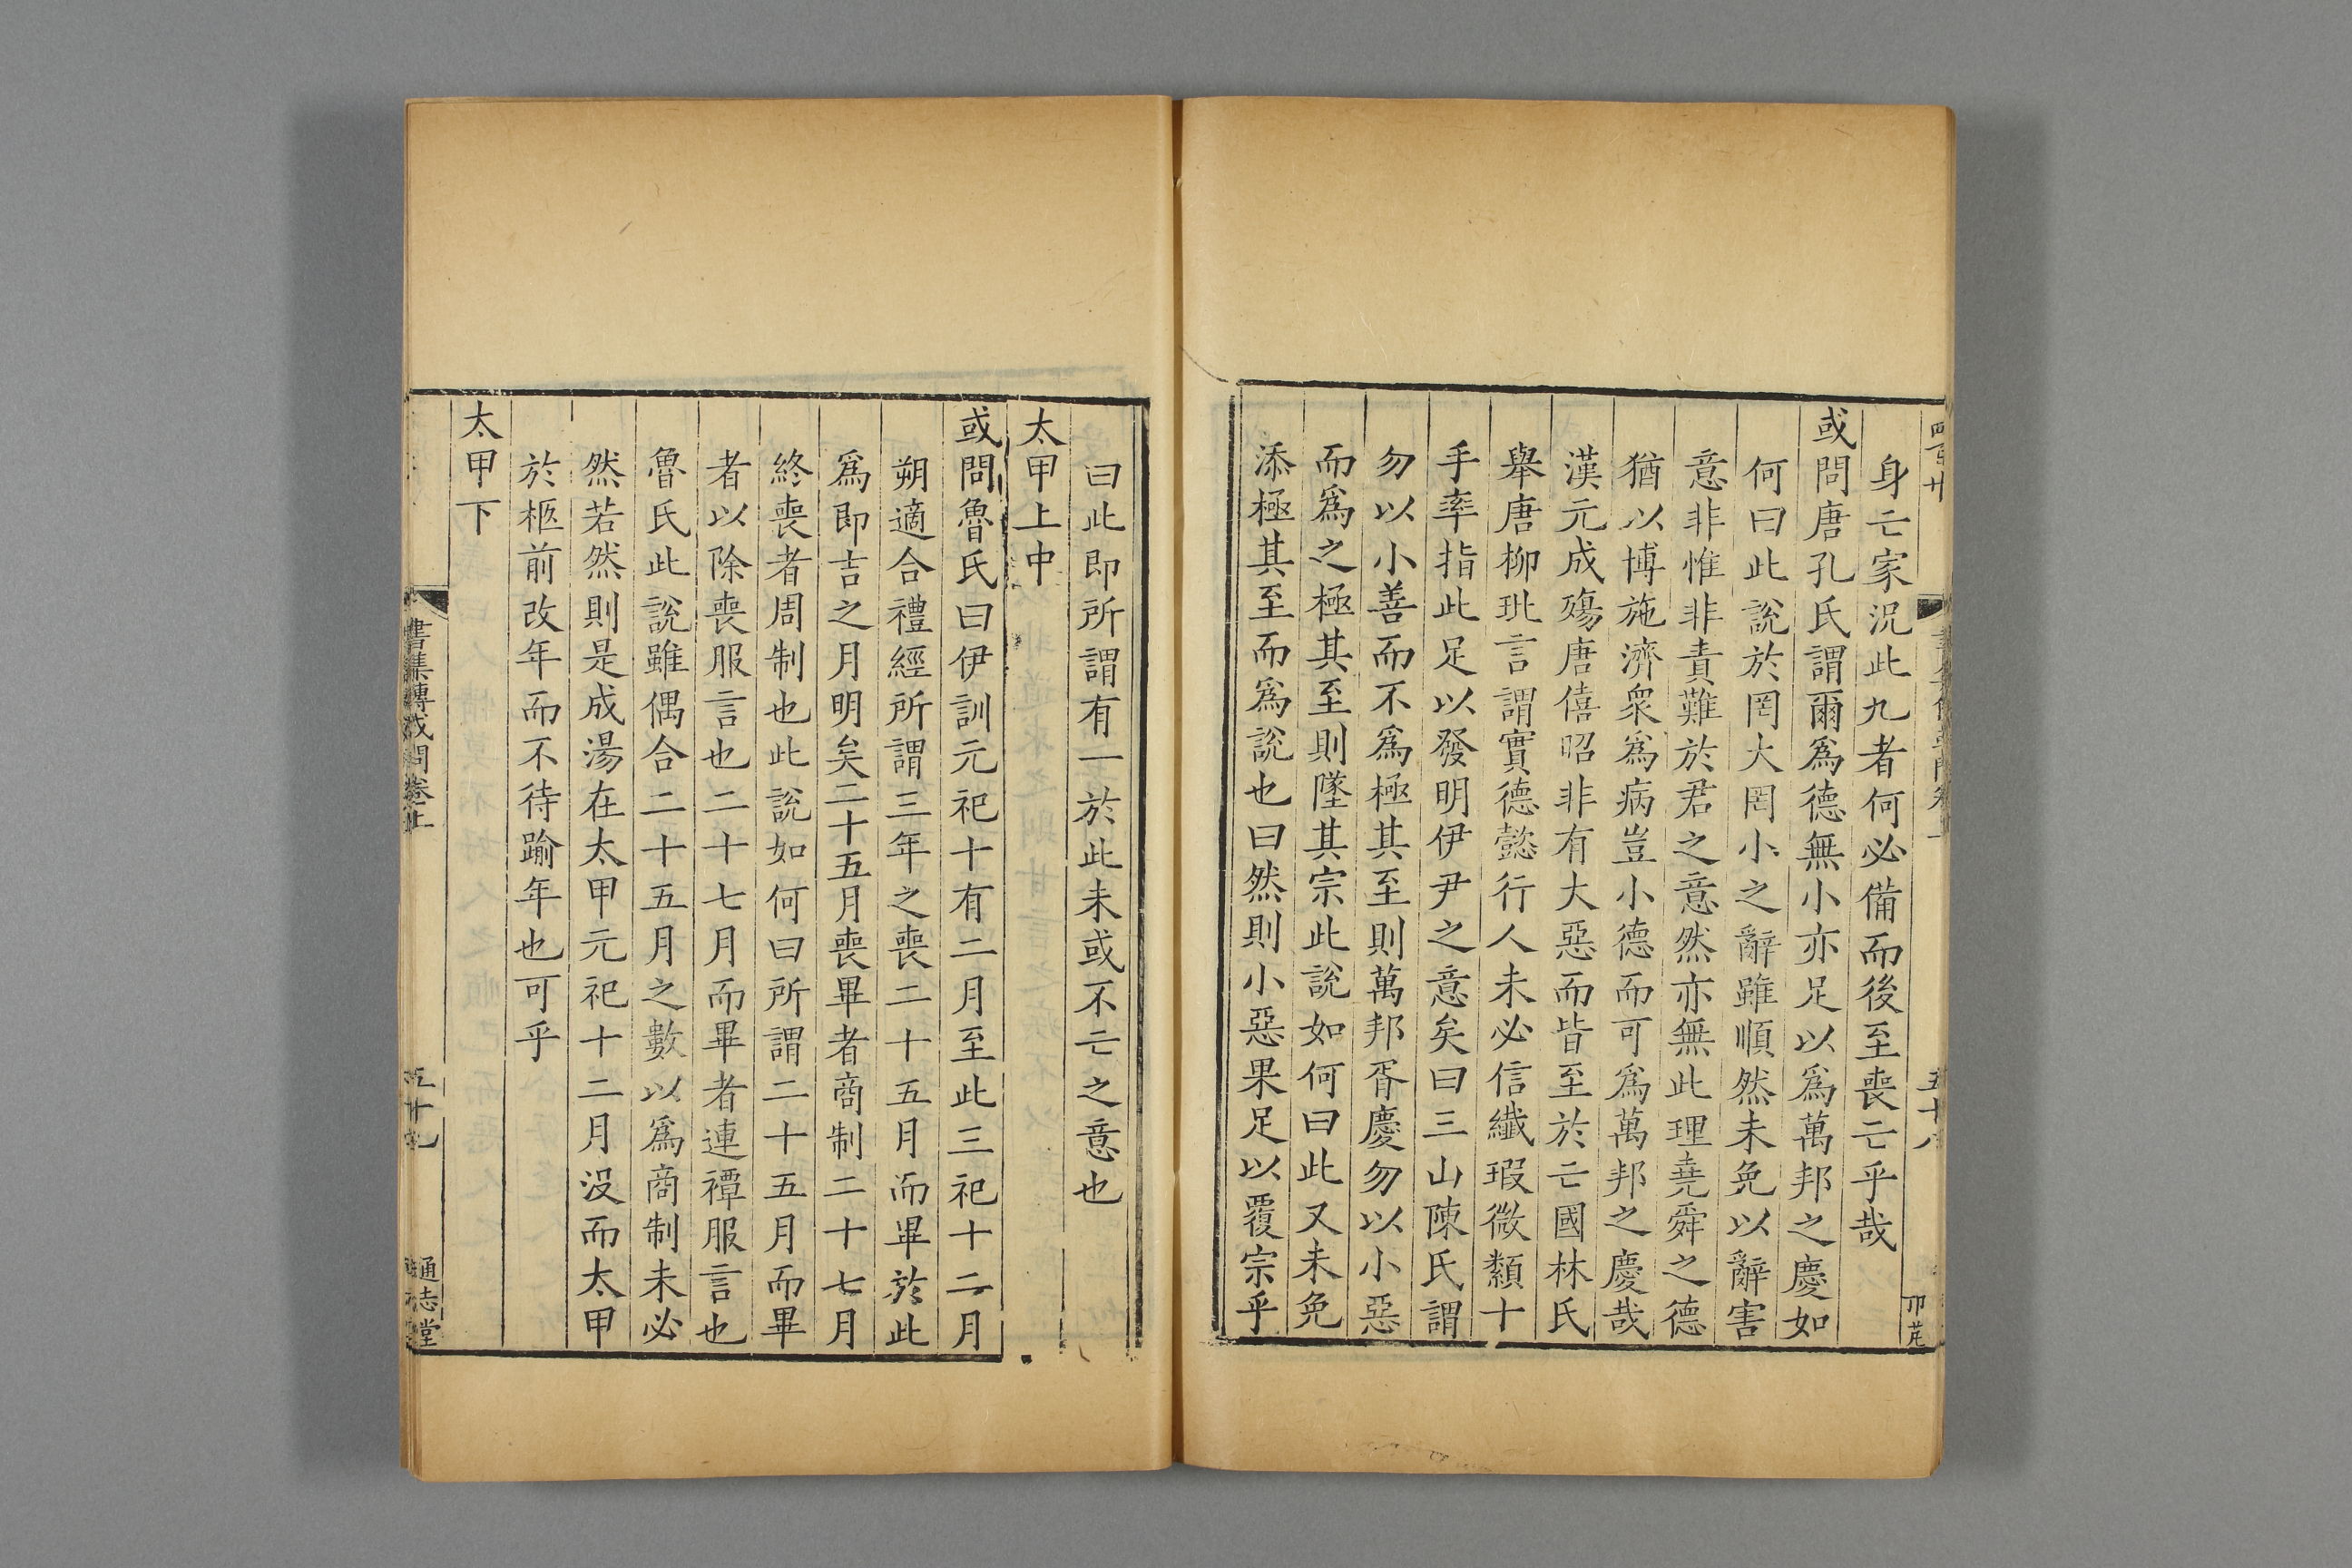 身亡家況此九者何必備而後至喪亡乎哉
或問唐孔氏謂爾為德無小亦足以為萬邦之慶如
何曰此說於罔大罔小之辭雖順然未免以辭害
意非惟非責難於君之意然亦無此理堯舜之德
猶以博施濟衆為病豈小德而可為萬邦之慶哉
漢元成殤唐僖昭非有大惡而皆至於亡國林氏
舉唐柳玭言謂實德懿行人未必信纖瑕微纇十
手率指此足以發明伊尹之意矣曰三山陳氏謂
勿以小善而不為極其至則萬邦胥慶勿以小惡
而爲之極其至則墜其宗此說如何曰此又未免
添極其至而爲說也曰然則小惡果足以覆宗乎
曰此即所謂有一於此未或不亡之意也
太甲上中
或問魯氏曰伊訓元祀十有二月至此三祀十二月
朔適合禮經所謂三年之喪二十五月而畢於此
爲即吉之月明矣二十五月喪畢者商制二十七月
終喪者周制也此說如何曰所謂二十五月而畢
者以除喪服言也二十七月而畢者連禫服言也
魯氏此說雖偶合二十五月之數以爲商制未必
然若然則是成湯在太甲元祀十二月沒而太甲
於柩前改年而不待踰年也可乎
太甲下
書集傳或問卷上
五十九
通志堂